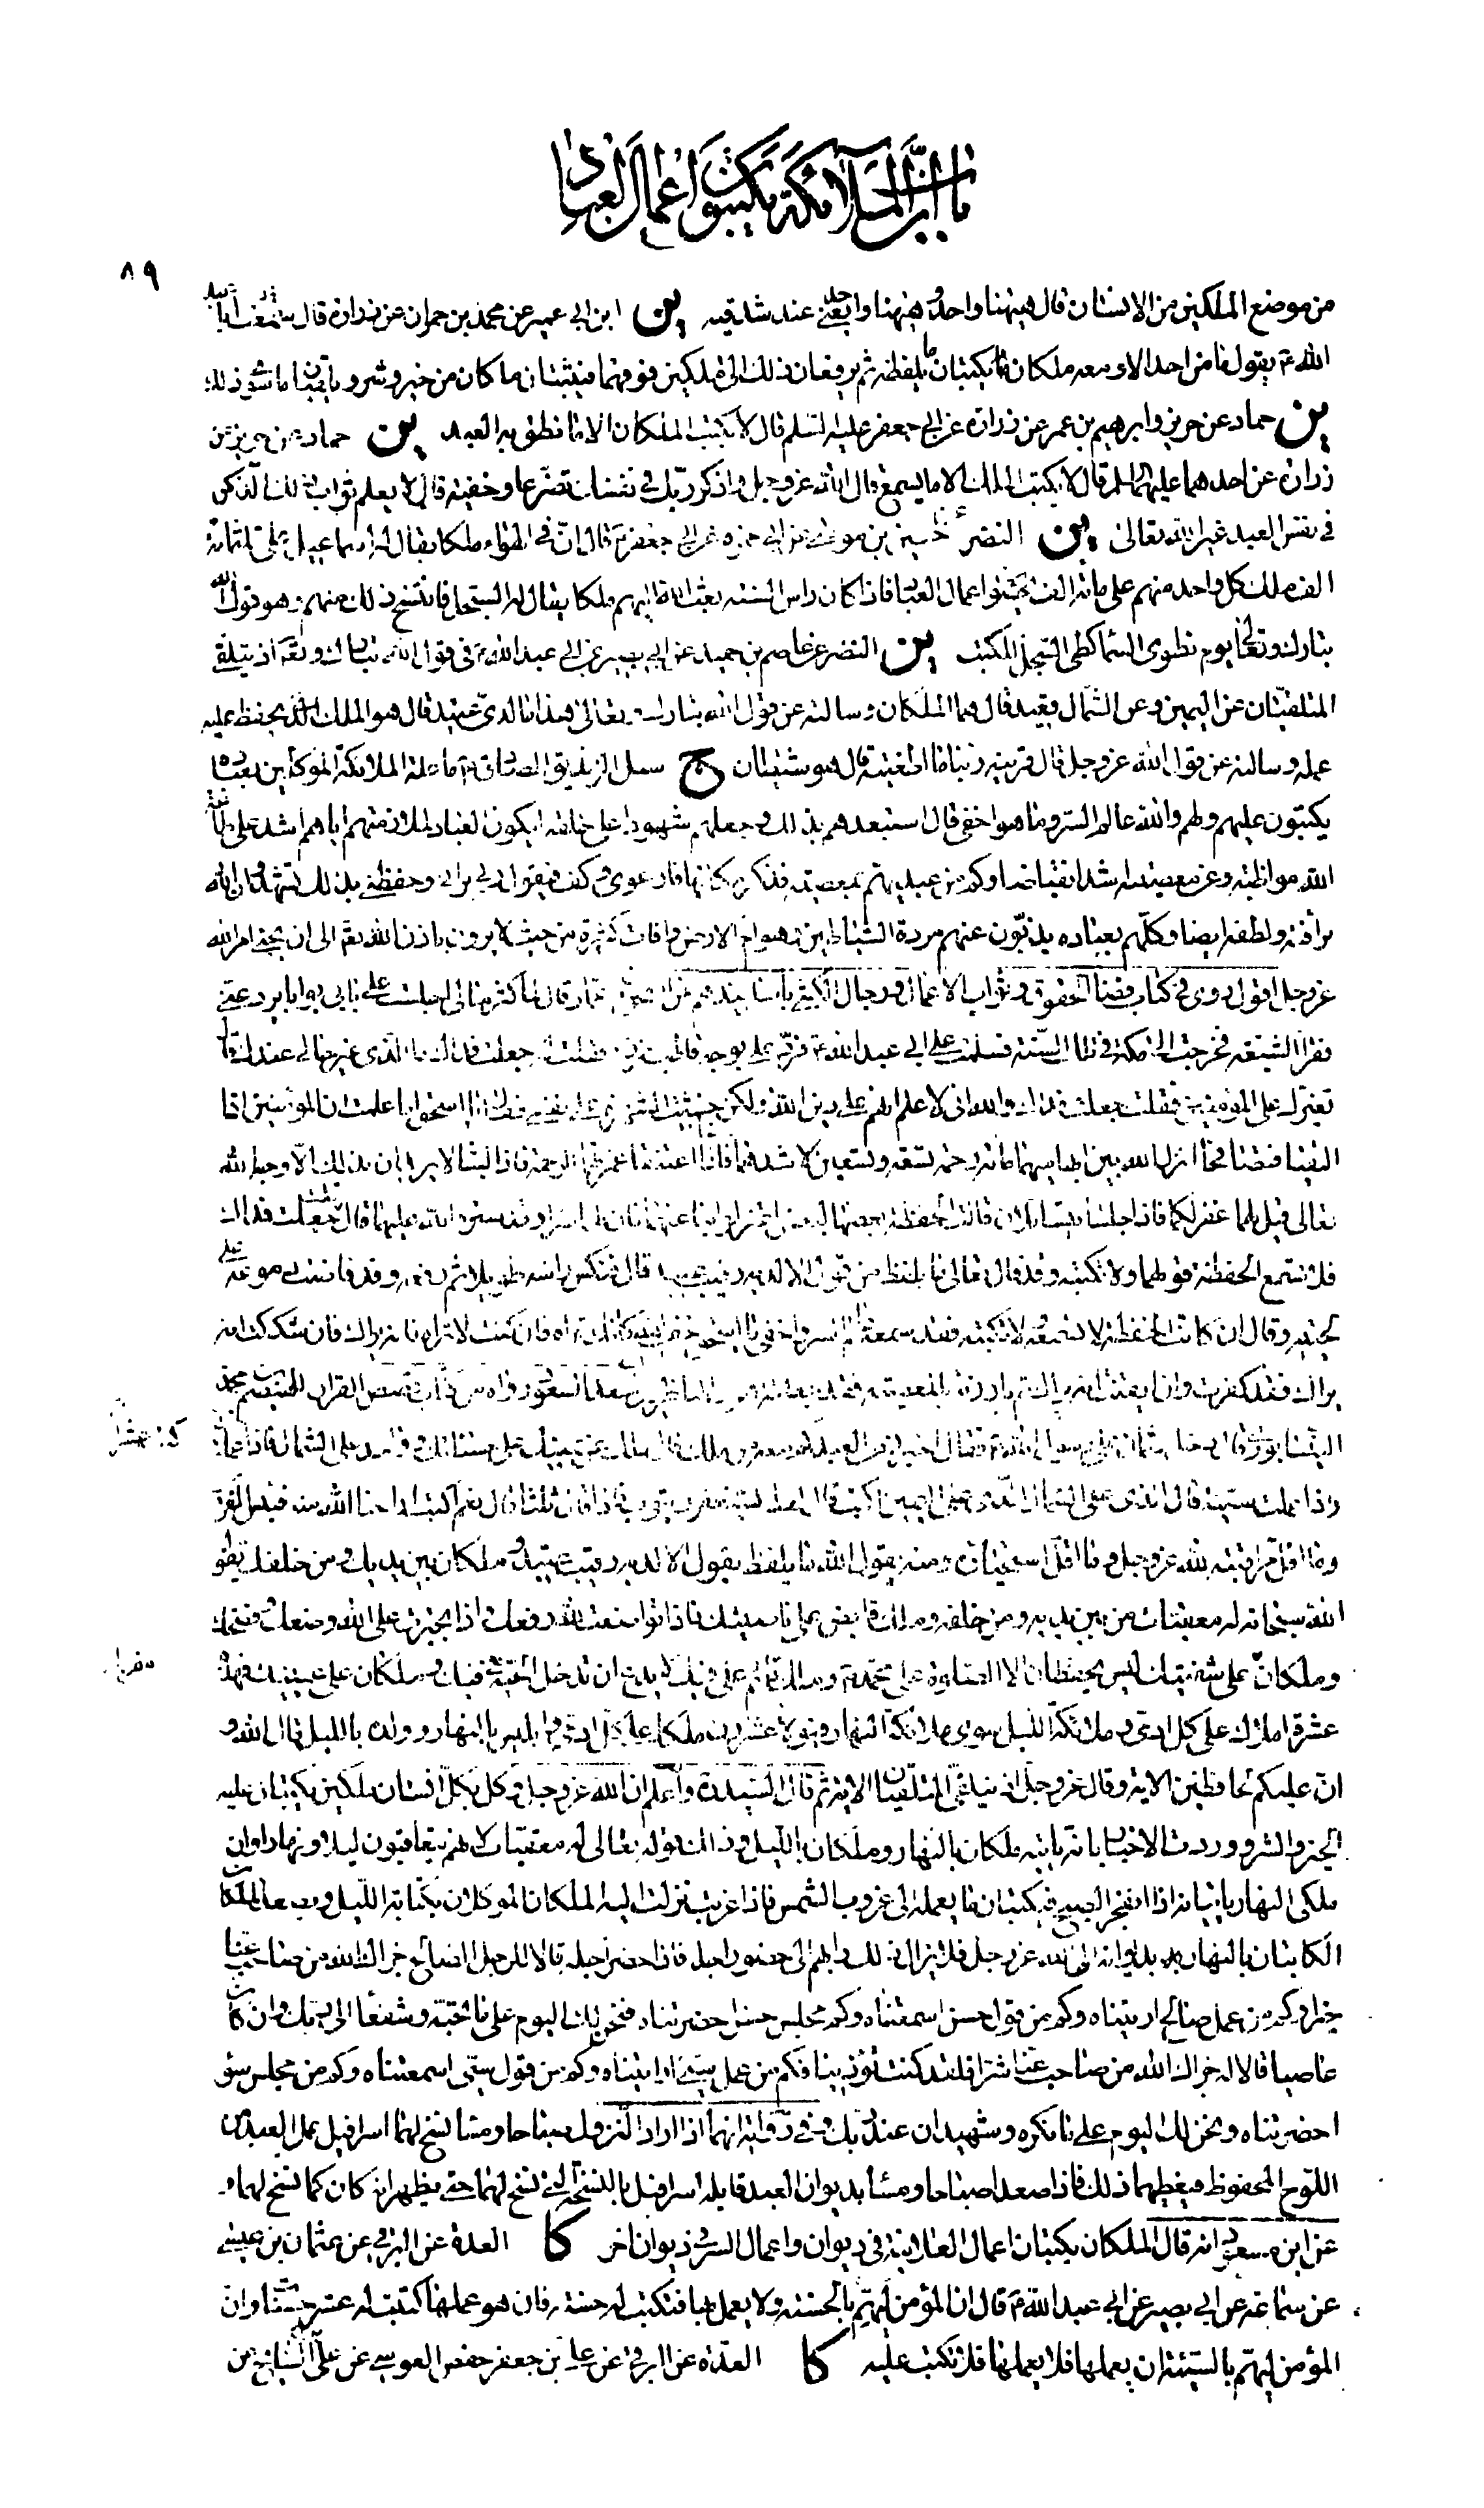 باب ان الملائكة يكتبون اعمال العباد
٨٩
من موضع الملكين من الانسان قال ههنا واحد وههنا واحد يعنى عند شدقيه ين ابن ابى عمير عن محمد بن حمران عن زرارة قال سمعت ابا عبد
الله ع يقول ما من احد الا ومعه ملكان يكتبان ما يلفظه ثم يرفعان ذلك الى ملكين فوقهما فيثبتان ما كان من خير وشر ويلقيان ما سوى ذلك
ين حماد عن حريز وابرهيم بن عمر عن زرارة عن ابى جعفر عليه السلم قال لا يكتب الملكان الا ما نطق به العبد ين حماد عن حريز عن
زرارة عن احدهما عليهما السلم قال لا يكتب الملك الا ما يسمع قال الله عز وجل واذكر ربك فى نفسك تضرعا وخفية قال لا يعلم ثواب ذلك الذكر
فى نفس العبد غير الله تعالى ين النضر عن حسين بن موسى عن ابى حمزة عن ابى جعفر ع قال ان فى الهواء ملكا يقال له اسماعيل على ثلثمائة
الف ملك كل واحد منهم على مائة الف يحصون اعمال العباد فاذا كان راس السنة بعث الله اليهم ملكا يقال له السجل فانتسخ ذلك منهم وهو قول الله
تبارك وتعالى يوم نطوى السماء كطى السجل للكتب ين النضر عن عاصم بن حميد عن ابى بصير عن ابى عبد الله ع فى قول الله تبارك وتعالى اذ يتلقى
المتلقيان عن اليمين وعن الشمال قعيد قال هما الملكان وسالته عن قول الله تبارك وتعالى هذا ما لدى عتيد قال هو الملك الذى يحفظ عليه
عمله وسالته عن قول الله عز وجل قال قرينه ربنا ما اطغيته قال هو شيطان ج سال الزنديق الصادق ع ما علة الملائكة الموكلين بعباده
يكتبون عليهم ولهم والله عالم السر وما هو اخفى قال استعبدهم بذلك وجعلهم شهودا على خلقه ليكون العباد لملازمتهم اياهم اشد على طاعة
الله مواظبة وعن معصيته اشد انقباضا وكم من عبد يهم بمعصيته فذكر مكانهما فارعوى وكف فيقول ربى يرانى وحفظتى بذلك تشهد وان الله
برأفته ولطفه ايضا وكلهم بعباده يذبون عنهم مردة الشياطين وهوام الارض وافات كثيرة من حيث لا يرون باذن الله الى ان يجئ امر الله
عز وجل اقول روى فى كتاب قضاء الحقوق وثواب الاعمال ورجال الكشى باسانيدهم عن اسحق بن عمار قال لما كثر مالى اجلست على بابى بوابا يرد عنى
فقراء الشيعة فخرجت الى مكة فى تلك السنة فسلمت على ابى عبد الله ع فرد على بوجه قاطب فقلت له جعلت فداك ما الذى غير حالى عندك قال
تغيرك على المؤمنين فقلت جعلت فداك والله انى لا علم انهم على دين الله ولكن خشيت الشهرة على نفسى فقال يا اسحق اما علمت ان المؤمنين اذا
التقيا فتصافحا انزل الله بين ابهاميهما مائة رحمة تسعة وتسعين لاشدهما فاذا اعتنقا غمرتهما الرحمة فاذا لبثا لا يريدان بذلك الا وجه الله
تعالى قيل لهما غفر لكما فاذا جلسا يتسائلان قالت الحفظة بعضها لبعض اعتزلوا بنا عنهما فان لهما سرا وقد ستره الله عليهما قال قلت جعلت فداك
فلا تسمع الحفظة قولهما ولا تكتبه وقد قال تعالى ما يلفظ من قول الا لديه رقيب عتيد قال فنكس راسه طويلا ثم رفعه وقد فاضت دموعه على
لحيته وقال ان كانت الحفظة لا تسمعه ولا تكتبه فقد سمعه عالم السر واخفى يا اسحق خف الله كانك تراه فان كنت لا تراه فانه يراك فان شككت انه
يراك فقد كفرت وان ايقنت انه يراك ثم بارزته بالمعصية فقد جعلته اهون الناظرين
وان عملت سيئة قال الذى على الشمال للذى على اليمين اكتب قال لعله يستغفر ويتوب فاذا قال ثلثا قال نعم اكتب اراحنا الله منه فبئس القرين
وما اقل مراقبته لله عز وجل وما اقل استحيائه منه يقول الله ما يلفظ من قول الا لديه رقيب عتيد وملكان بين يديك ومن خلفك يقول
الله سبحانه له معقبات من بين يديه ومن خلفه وملك قابض على ناصيتك فاذا تواضعت لله رفعك واذا تجبرت على الله وضعك وفضحك
وملكان على شفتيك ليس يحفظان الا الصلوة على محمد ع وملك قائم على فيك لا يدع ان تدخل الحية فيك وملكان على عينيك فهذه
عشرة املاك على كل ادمى وملائكة الليل سوى ملائكة النهار فهؤلاء عشرون ملكا على كل ادمى وابليس بالنهار وولده بالليل قال الله
ان عليكم لحافظين الاية وقال عز وجل اذ يتلقى المتلقيان الاية ثم قال السيد ره واعلم ان الله عز وجل وكل بكل انسان ملكين يكتبان عليه
الخير والشر ووردت الاخبار بانه ياتيه ملكان بالنهار وملكان بالليل وذلك قوله تعالى له معقبات لانهم يتعاقبون ليلا ونهارا وان
ملكى النهار ياتيانه اذا انفجر الصبح فيكتبان ما يعمله الى غروب الشمس فاذا غربت نزلت اليه الملكان الموكلان بكتابة الليل ويصعد الملكان
الكاتبان بالنهار بديوانه الى الله عز وجل فلا يزال ذلك دابهم الى حضور اجله فاذا حضر اجله قالا للرجل الصالح جزاك الله من صاحب عنا
خيرا وكم من عمل صالح اريتناه وكم من قول حسن اسمعتناه وكم مجلس حسن احضرتناه فنحن لك اليوم على ما تحبه وشفعاء الى ربك وان كان
عاصيا قالا له جزاك الله من صاحب عنا شرا فلقد كنت تؤذينا فكم من عمل سيئ اريتناه وكم من قول سيئ اسمعتناه وكم من مجلس سوء
احضرتناه ونحن لك اليوم على ما تكره وشهيدان عند ربك وفى رواية انهما اذا ارادا النزول صباحا ومساء ينسخ لهما اسرافيل عمل العبد من
اللوح المحفوظ فيعطيهما ذلك فاذا صعدا صباحا ومساء بديوان العبد قابله اسرافيل بالنسخة التى نسخ لهما حتى يظهر انه كان كما نسخ لهما و
عن ابن مسعود انه قال الملكان يكتبان اعمال العلانية فى ديوان واعمال السر فى ديوان اخر كا العدة عن البرقى عن عثمان بن عيسى
عن سماعة عن ابى بصير عن ابى عبد الله ع قال ان المؤمن ليهم بالحسنة ولا يعمل بها فتكتب له حسنة فان هو عملها كتبت له عشر حسنات وان
المؤمن ليهم بالسيئة ان يعملها فلا يعملها فلا تكتب عليه كا العدة عن البرقى عن على بن حفص العوسى عن على السايح عن